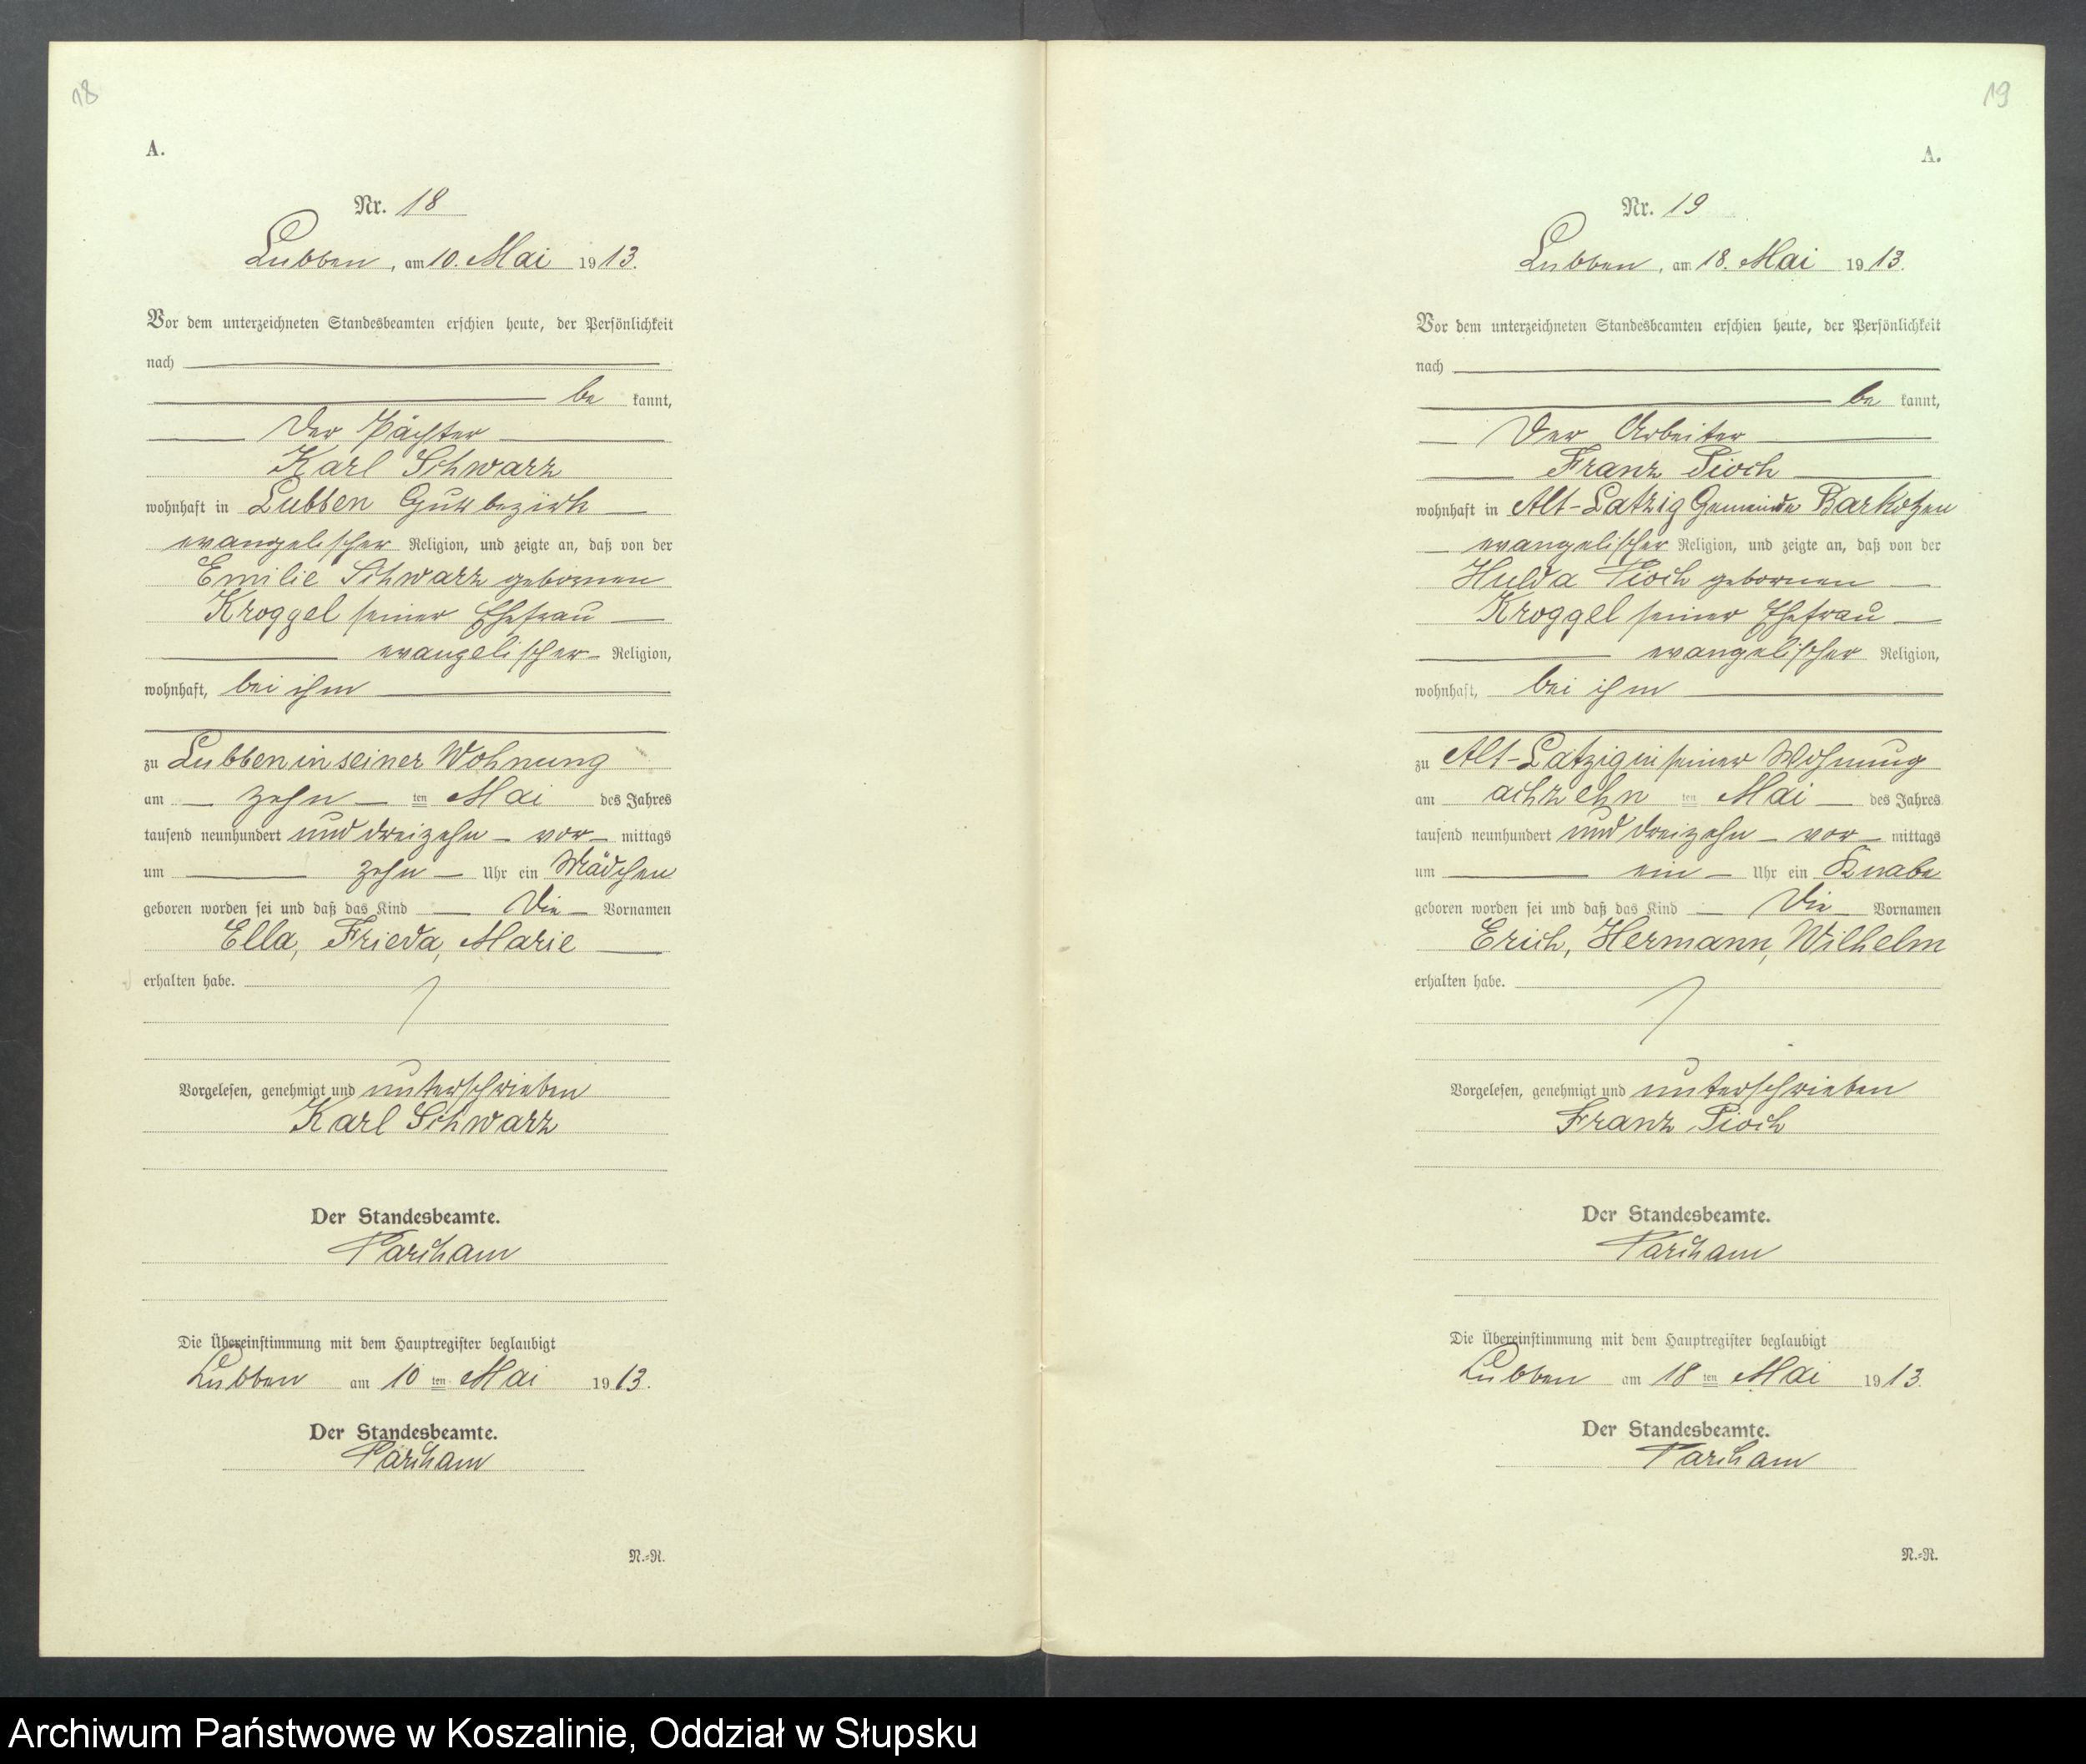 18
A.
Nr. 18
Lubben, am 10. Mai 1913.
Vor dem unterzeichneten Standesbeamten erschien heute, der Persönlichkeit
nach
be kannt,
der Pächter
Karl Schwarz
wohnhaft in Lubben Gutsbezirk
evangelischer Religion, und zeigte an, daß von der
Emilie Schwarz gebornen
Kroggel seiner Ehefrau
evangelischer Religion,
wohnhaft, bei ihm
zu Lubben in seiner Wohnung
am zehn ten Mai des Jahres
tausend neunhundert und dreizehn vor mittags
um zehn Uhr ein Mädchen
geboren worden sei und daß das Kind die Vornamen
Ella, Frieda, Marie
erhalten habe.
Vorgelesen, genehmigt und unterschrieben
Karl Schwarz
Der Standesbeamte.
Parcham
Die Übereinstimmung mit dem Hauptregister beglaubigt
Lubben am 10 ten Mai 1913.
Der Standesbeamte.
Parcham
N.=R.
19
A.
Nr. 19
Lubben, am 18. Mai 1913.
Vor dem unterzeichneten Standesbeamten erschien heute, der Persönlichkeit
nach
be kannt,
der Arbeiter
Franz Pioch
wohnhaft in Alt-Latzig Gemeinde Barkotzen
evangelischer Religion, und zeigte an, daß von der
Hulda Pioch gebornen
Kroggel seiner Ehefrau
evangelischer Religion,
wohnhaft, bei ihm
zu Alt-Latzig in seiner Wohnung
am achtzehn ten Mai des Jahres
tausend neunhundert und dreizehn vor mittags
um ein Uhr ein Knabe
geboren worden sei und daß das Kind die Vornamen
Erich, Hermann, Wilhelm
erhalten habe.
Vorgelesen, genehmigt und unterschrieben
Franz Pioch
Der Standesbeamte.
Parcham
Die Übereinstimmung mit dem Hauptregister beglaubigt
Lubben am 18 ten Mai 1913.
Der Standesbeamte.
Parcham
N.=R.
Archiwum Państwowe w Koszalinie, Oddział w Słupsku